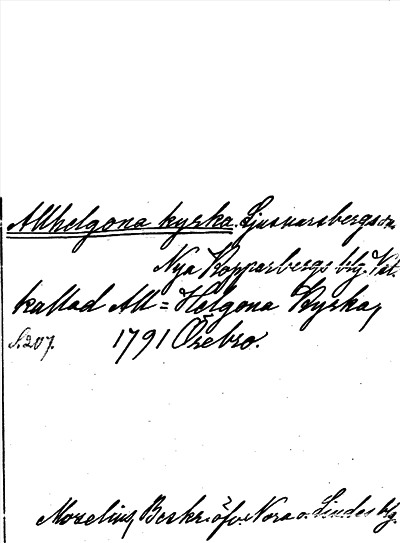 Allhelgona kyrka. Ljusnarsbergs sn.
Nya Kopparbergs blg. Vst.
kallad All=Helgona Kyrka,
S. 207. 1791 Örebro.
Morelius, Beskr. öfv. Nora o. Lindes blg.